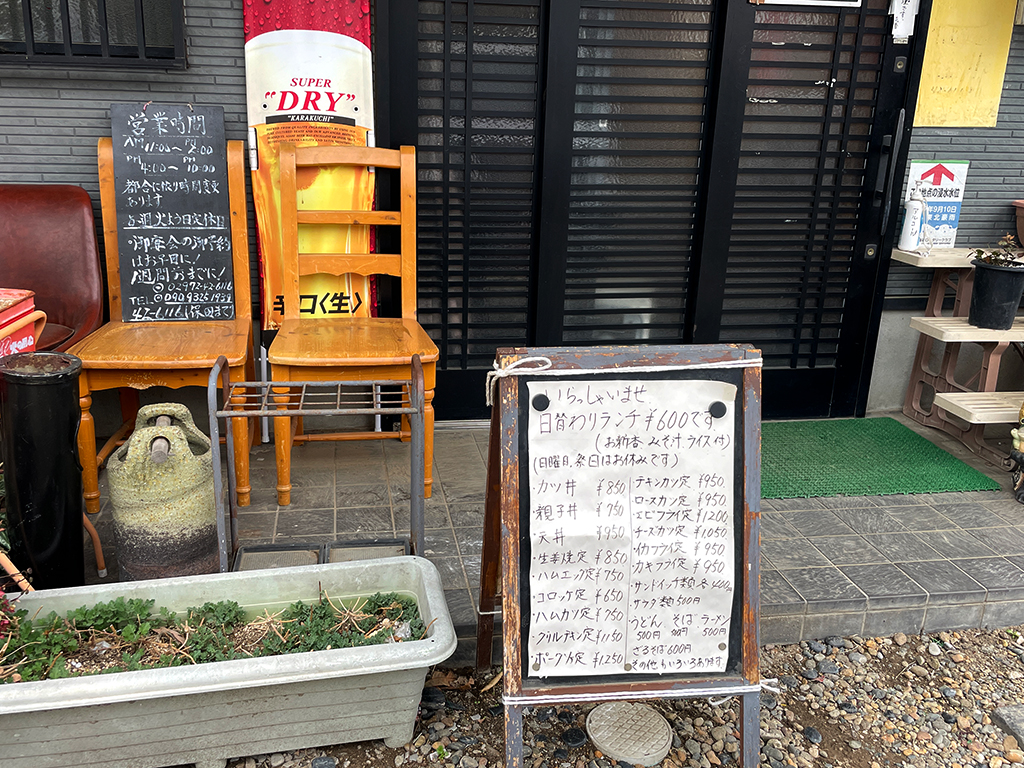 営業時間
AM 11:00〜PM 2:00
PM 4:00〜 10:00
都合に依り時間変更
あります
毎週火よう日定休日
・御宴会の御予約
はお早目に!
1週間前までに!
TEL 090 9325 1938
42-6116
SUPER
"DRY"
"KARAKUCHI"
辛口〈生〉
の浸水水位
9月10日
東北豪雨
いらっしゃいませ
日替わりランチ ¥600です
(お新香 みそ汁 ライス付)
(日曜日、祭日はお休みです)
・カツ丼 ¥850
・親子丼 ¥750
・天丼 ¥950
・生姜焼定 ¥850
・ハムエッグ定 ¥750
・コロッケ定 ¥650
・ハムカツ定 ¥750
・グリルチキン定 ¥1,150
・ポークカツ定 ¥1,250
・チキンカツ定 ¥950
・ロースカツ定 ¥950
・エビフライ定 ¥1,200
・チーズカツ定 ¥1,050
・イカフライ定 ¥950
・カキフライ定 ¥950
・サンドイッチ類 各400円
・サラダ類 500円
うどん、そば ラーメン
500円 500円
ざるそば 600円
その他 いろいろあります